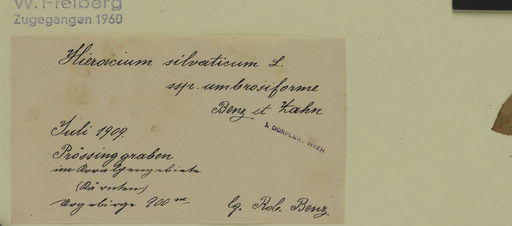 W. Freiberg
Zugegangen 1960
Hieracium silvaticum L.
ssp. umbrosiforme
Benz et Zahn
I. DÖRFLER, WIEN
Juli 1909.
Prössinggraben
im Koralpengebiete
(Kärnten)
Urgebirge 900 m
lg. Rob. Benz.